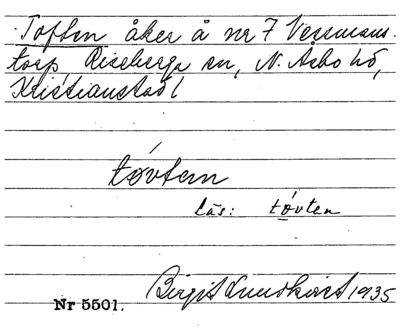 Toften åker å nr 7 Vessmans-
torp, Riseberga sn, N. Åsbo hd,
Kristianstad l
tóvtan
läs: tóvten
Birgit Lundkvist 1935
Nr 5501.